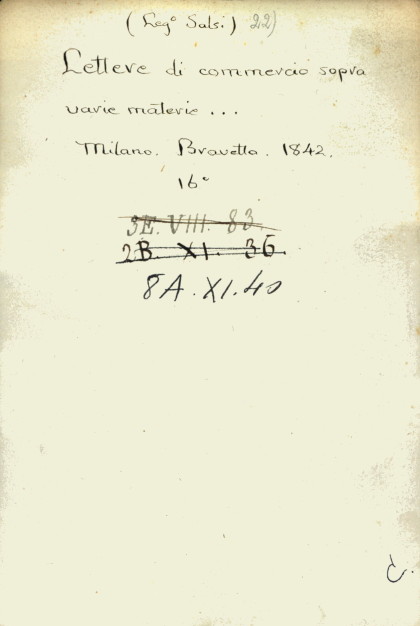 (Leg° Salsi) 22)
Lettere di commercio sopra
varie materie ...
Milano. Bravetta. 1842.
16°
3E. VIII. 83
2B XI. 36
8A. XI. 40